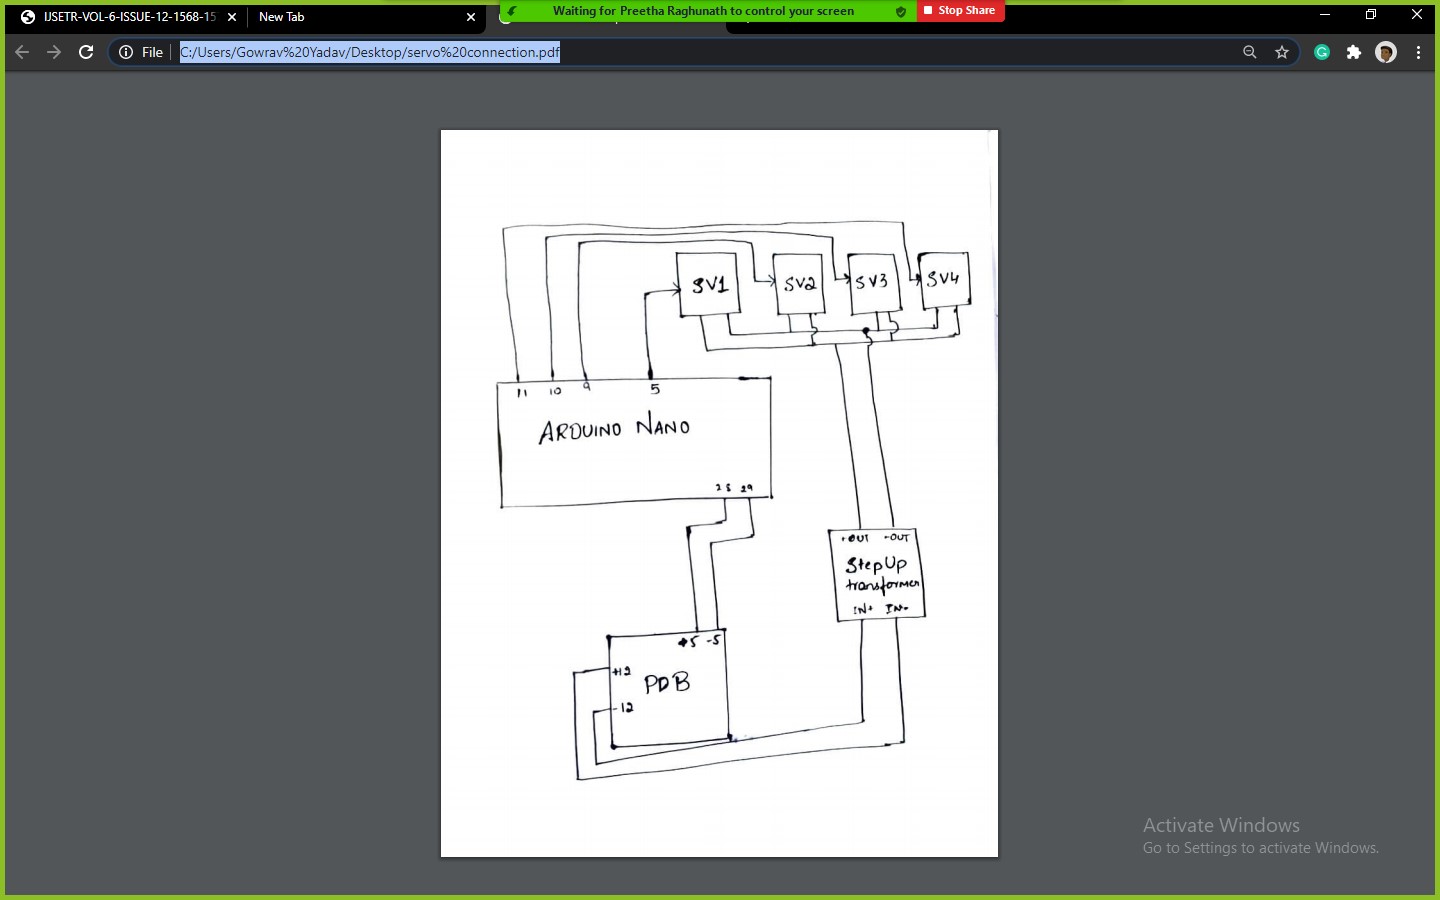 IJSETR-VOL-6-ISSUE-12-1568-15
New Tab
Waiting for Preetha Raghunath to control your screen
Stop Share
File
C:/Users/Gowrav%20Yadav/Desktop/servo%20connection.pdf
SV1 SV2 SV3 SV4
11 10 9 5
ARDUINO NANO
28 29
+OUT -OUT
StepUp
transformer
IN+ IN-
+5 -5
+12
PDB
-12
Activate Windows
Go to Settings to activate Windows.